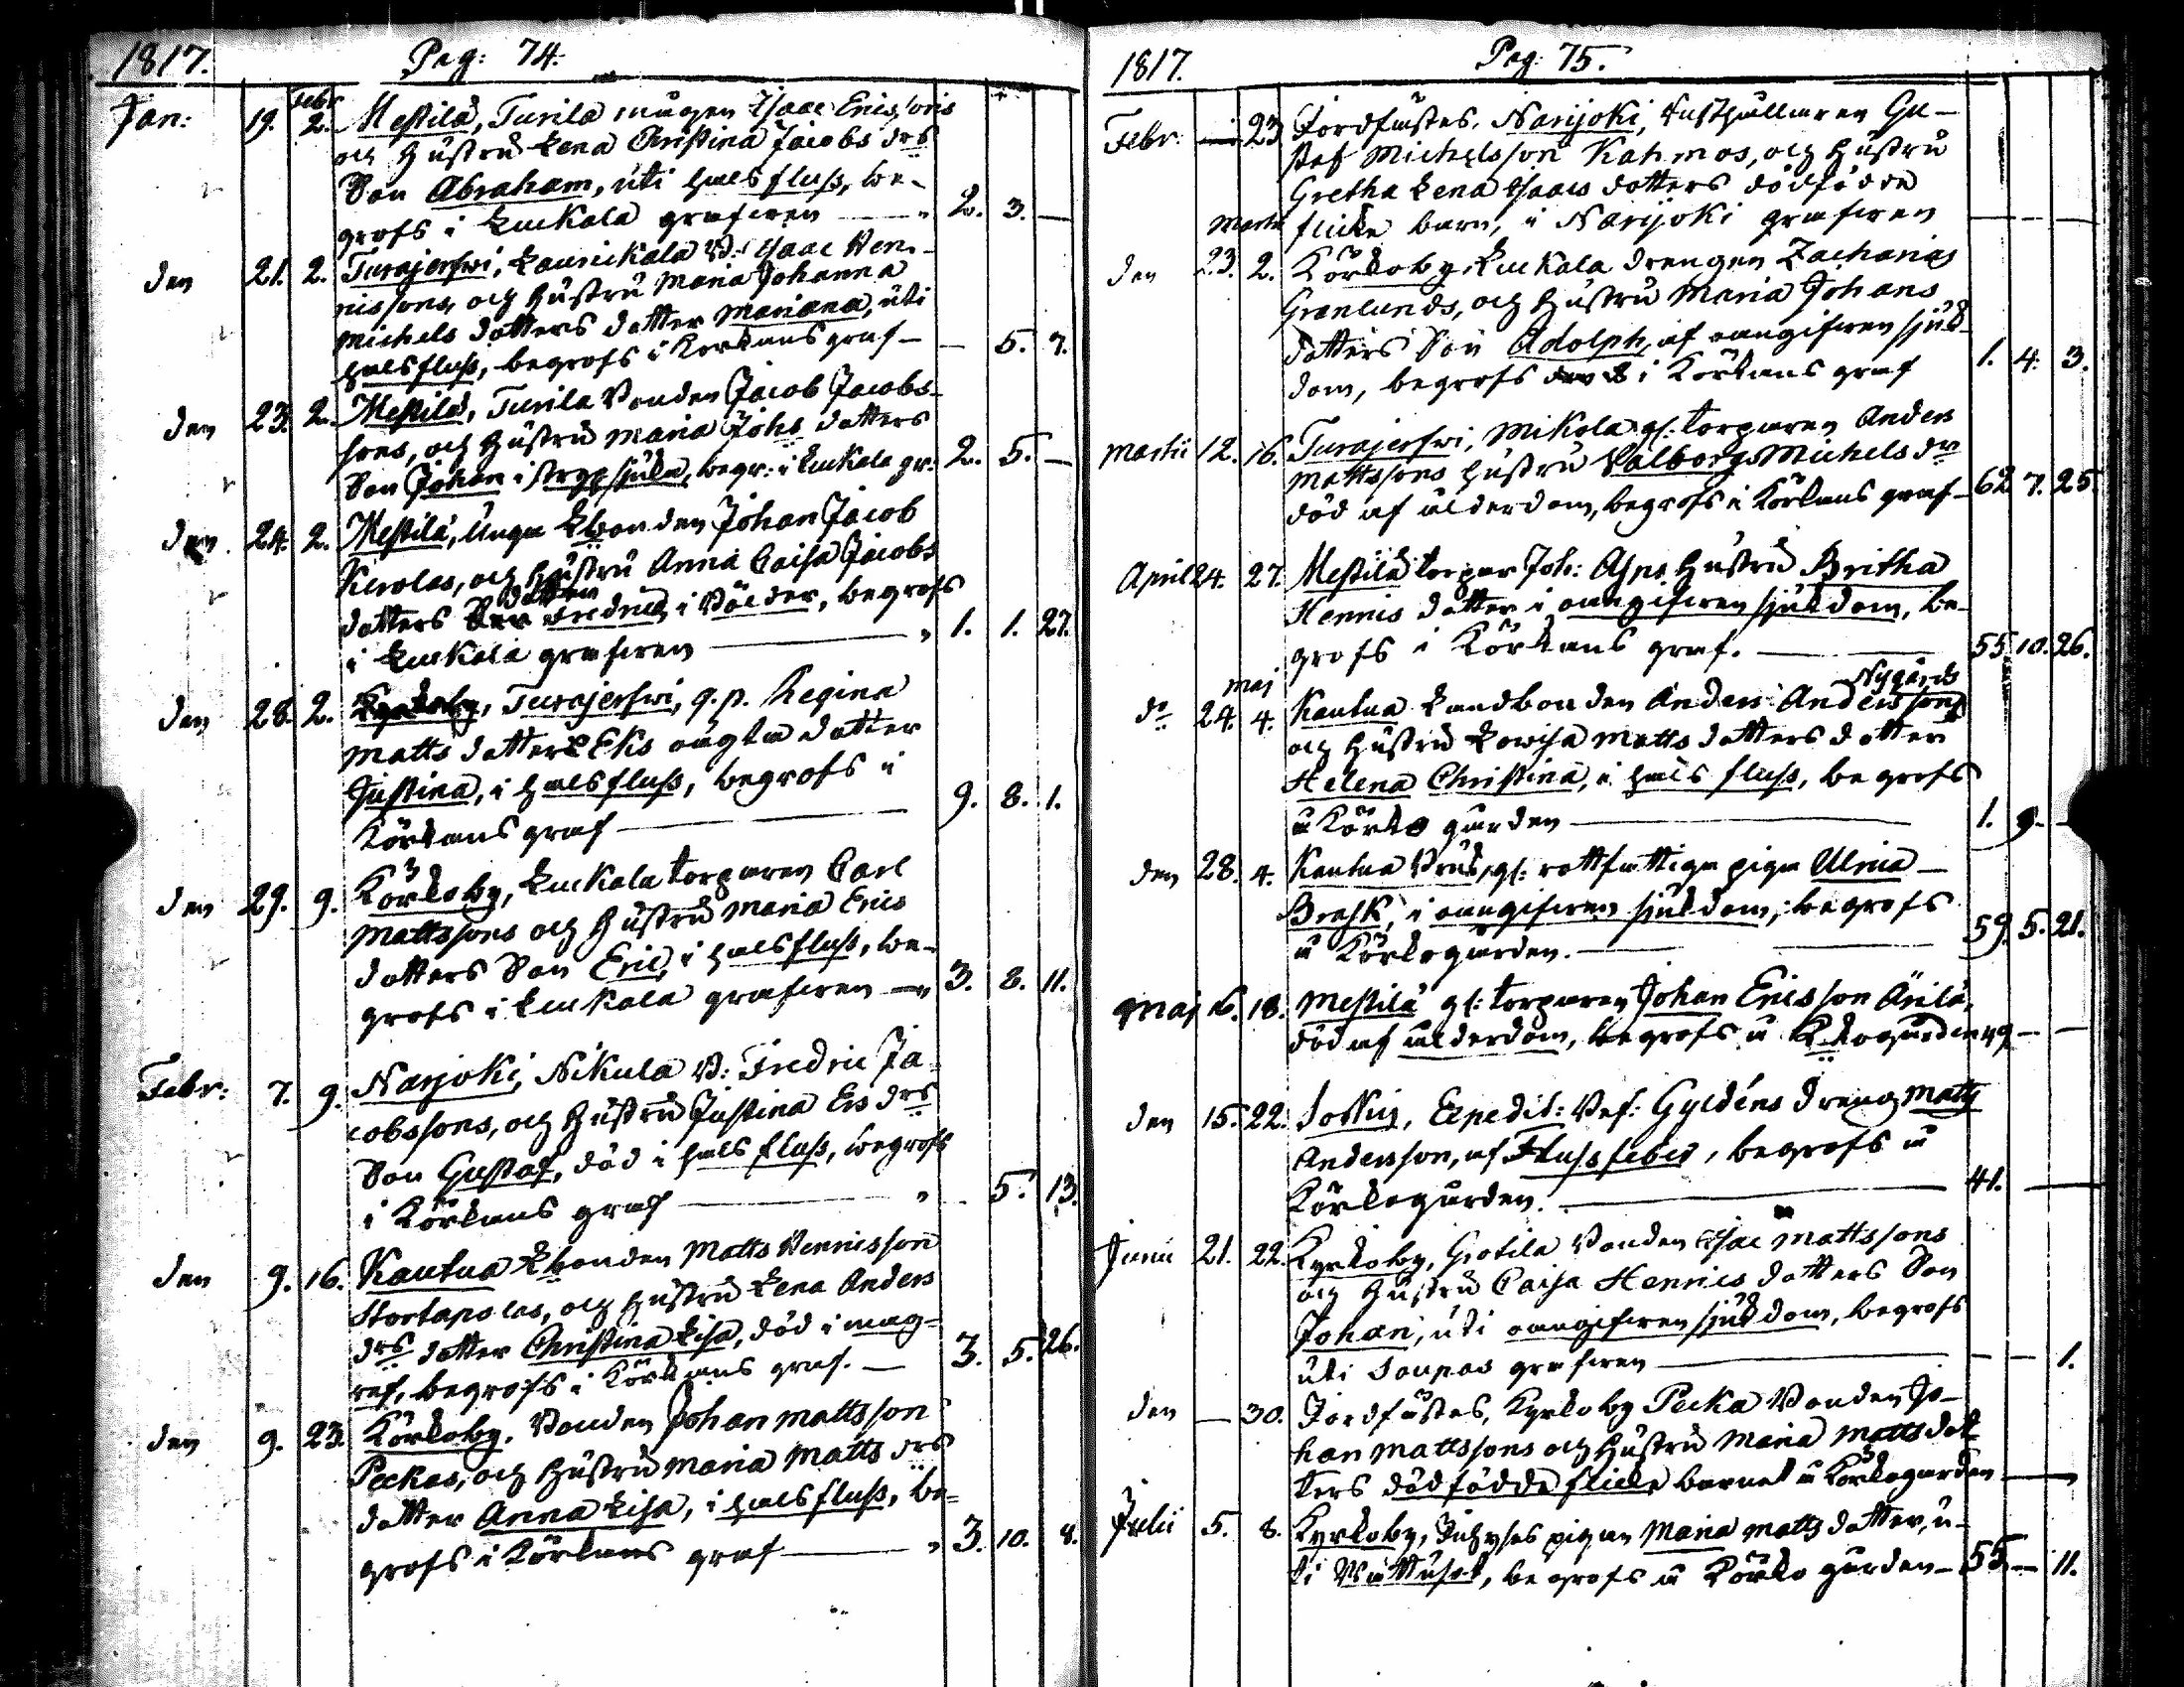 1817. Pag: 74.
Jan: 19. Febr 2. Mestilä, Turila mågen Isaac Ericssons
och Hustru Lena Christina Jacobs drs
Son Abraham, uti halsfluss, be-
grofs i Luckala grafwen — " 2. 3. —
den 21. 2. Turajerfwi, Laurickala B: Isaac Hen-
nissons, och Hustru Maria Johanna
Michels dotters dotter Mariana, uti
halsfluss, begrofs i Körkans graf — — 5. 7.
den 23. 2. Mestilä, Turila Bonden Jacob Jacobs-
sons, och Hustru Maria Johs dotters
Son Johan i strypsjuka, begr: i Luckala gr: 2. 5. —
den 24. 2. Mestilä, Unga Lbonden Johan Jacob
Kerolas, och Hustru Anna Caisa Jacobs
dotters dotter i Bölder, begrofs
i Luckala grafwen — " 1. 1. 27.
den 28. 2. Turajerfwi, q. p. Regina
Matts dotters Eks oägta dotter
Justina, i halsfluss, begrofs i
Körkans graf — 9. 8. 1.
den 29. 9. Körkoby, Luckala torparen Carl
Mattssons och Hustru Maria Erics
dotters Son Eric, i halsfluss, be-
grofs i Luckala grafwen — " 3. 8. 11.
Febr: 7. 9. Narjoki, Nikula B: Fredric Ja-
cobssons, och Hustru Justina Ers drs
Son Gustaf, död i halsfluss, begrofs
i Körkans graf — " 5. 13.
den 9. 16. Kautua Lbonden Matts Hennisson
Stortapolas, och Hustru Lena Anders
drs dotter Christina Lisa, död i mag-
ref, begrofs i Körkans graf. — 3. 5. 26.
den 9. 23. Körkoby, Bonden Johan Mattsson
Peckas, och Hustru Maria Matts drs
dotter Anna Lisa, i halsfluss, be-
grofs i Körkans graf — " 3. 10. 8.
1817. Pag: 75.
Febr: — 23 Jordfästes, Narijoki, Rusthållaren Gu-
staf Michelsson Kahmos, och Hustru
Gretha Lena Isaacs dotters dödfödde
flicke barn, i Narijoki grafwen — — —
den 23. Martii 2. Körkoby, Luckala drengen Zacharias
Grönlunds, och Hustru Maria Johans
dotters Son Adolph, af oangifwen sjuk-
dom, begrofs i Körkans graf 1. 4. 3.
Martii 12. 16. Turajerfwi, Mikola gl: torparen Anders
Mattssons Hustru Valborg Michels dr
död af ålderdom, begrofs i Körkans graf — 62 7. 25.
April 24. 27. Mestilä torpar Joh: Hustru Britha
Hennis dotter i oangifwen sjukdom, be-
grofs i Körkans graf. — 55 10. 26.
do 24. maj 4. Kautua Landbonden Anders Anderssons Nygårds
och Hustru Lowisa Matts dotters dotter
Helena Christina, i halsfluss, begrofs
å Körkogården — 1. 9. —
den 28. 4. Kautua Bruk, gl: rottfattiga pigan Ulrica
Brask, i oangifwen sjukdom, begrofs
å Körkogården. — 59. 5. 21.
Maj 16. 18. Mestilä gl: torparen Johan Ericsson Ärilä,
död af ålderdom, begrofs å Kkogården 79 — —
den 15. 22. Expedit: Bef: Gyldéns dreng Matts
Andersson, af Flussfeber, begrofs å
Körkogården. — 41. —
Junii 21. 22. Kyrkoby, Grotila Bonden Isac Mattssons
och Hustru Caisa Henrics dotters Son
Johan, uti oangifwen sjukdom, begrofs
uti Soupas grafwen — — — 1.
den — 30. Jordfästes, Kyrkoby Pecka Bonden Jo-
han Mattssons och Hustru Maria Matts dot-
ters dödfödde flicke barnet å Körkogården —
Julii 5. 8. Kyrkoby, pigan Maria Matts dotter, u-
ti Wattusot, begrofs å Körkogården — 55 — 11.